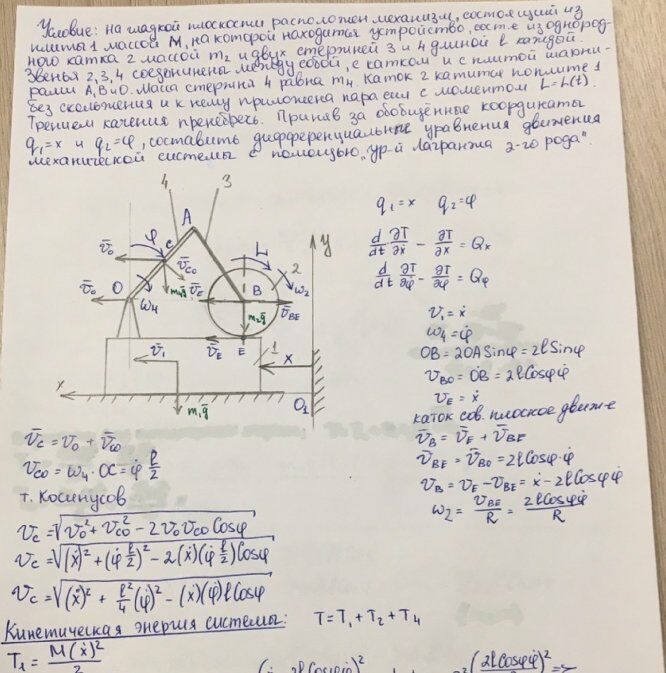 Условие: на гладкой плоскости расположен механизм, состоящий из
плиты 1 массой M, на которой находится устройство, сост-е из однород-
ного катка 2 массой m₂ и двух стержней 3 и 4 длиной l каждой.
Звенья 2, 3, 4 соединены между собой, с катком и с плитой шарни-
рами A, B и O. Масса стержня 4 равна m₄. Каток 2 катится по плите 1
без скольжения и к нему приложена пара сил с моментом L = L(t).
Трением качения пренебречь. Приняв за обобщённые координаты
q₁=x и q₂=φ, составить дифференциальные уравнения движения
механической системы с помощью "ур-й Лагранжа 2-го рода".
4 3
A
φ
C
V̄₀
V̄CO
m₄ḡ
V̄E
L
2
ω₂
y
V̄₀
O
ω₄
B
V̄BE
m₂ḡ
V̄E
E
1
V̄₁
x
x
m₁ḡ
O₁
q₁=x q₂=φ
d/dt ∂T/∂ẋ − ∂T/∂x = Qx
d/dt ∂T/∂φ̇ − ∂T/∂φ = Qφ
V₁ = ẋ
ω₄ = φ̇
OB = 2OA Sinφ = 2l Sinφ
VBO = ȮB = 2l Cosφ φ̇
VE = ẋ
каток сов. плоское движ-е
V̄B = V̄E + V̄BE
V̄BE = V̄BO = 2l Cosφ·φ̇
VB = VE − VBE = ẋ − 2l Cosφ φ̇
ω₂ = VBE/R = 2l Cosφ φ̇/R
V̄C = V̄O + V̄CO
VCO = ω₄·OC = φ̇ l/2
т. Косинусов
VC = √(V₀² + VCO² − 2V₀VCO Cosφ)
VC = √((ẋ)² + (φ̇ l/2)² − 2(ẋ)(φ̇ l/2)Cosφ)
VC = √((ẋ)² + l²/4 (φ̇)² − (ẋ)(φ̇)l Cosφ)
Кинетическая энергия системы: T = T₁ + T₂ + T₄
T₁ = M(ẋ)²/2